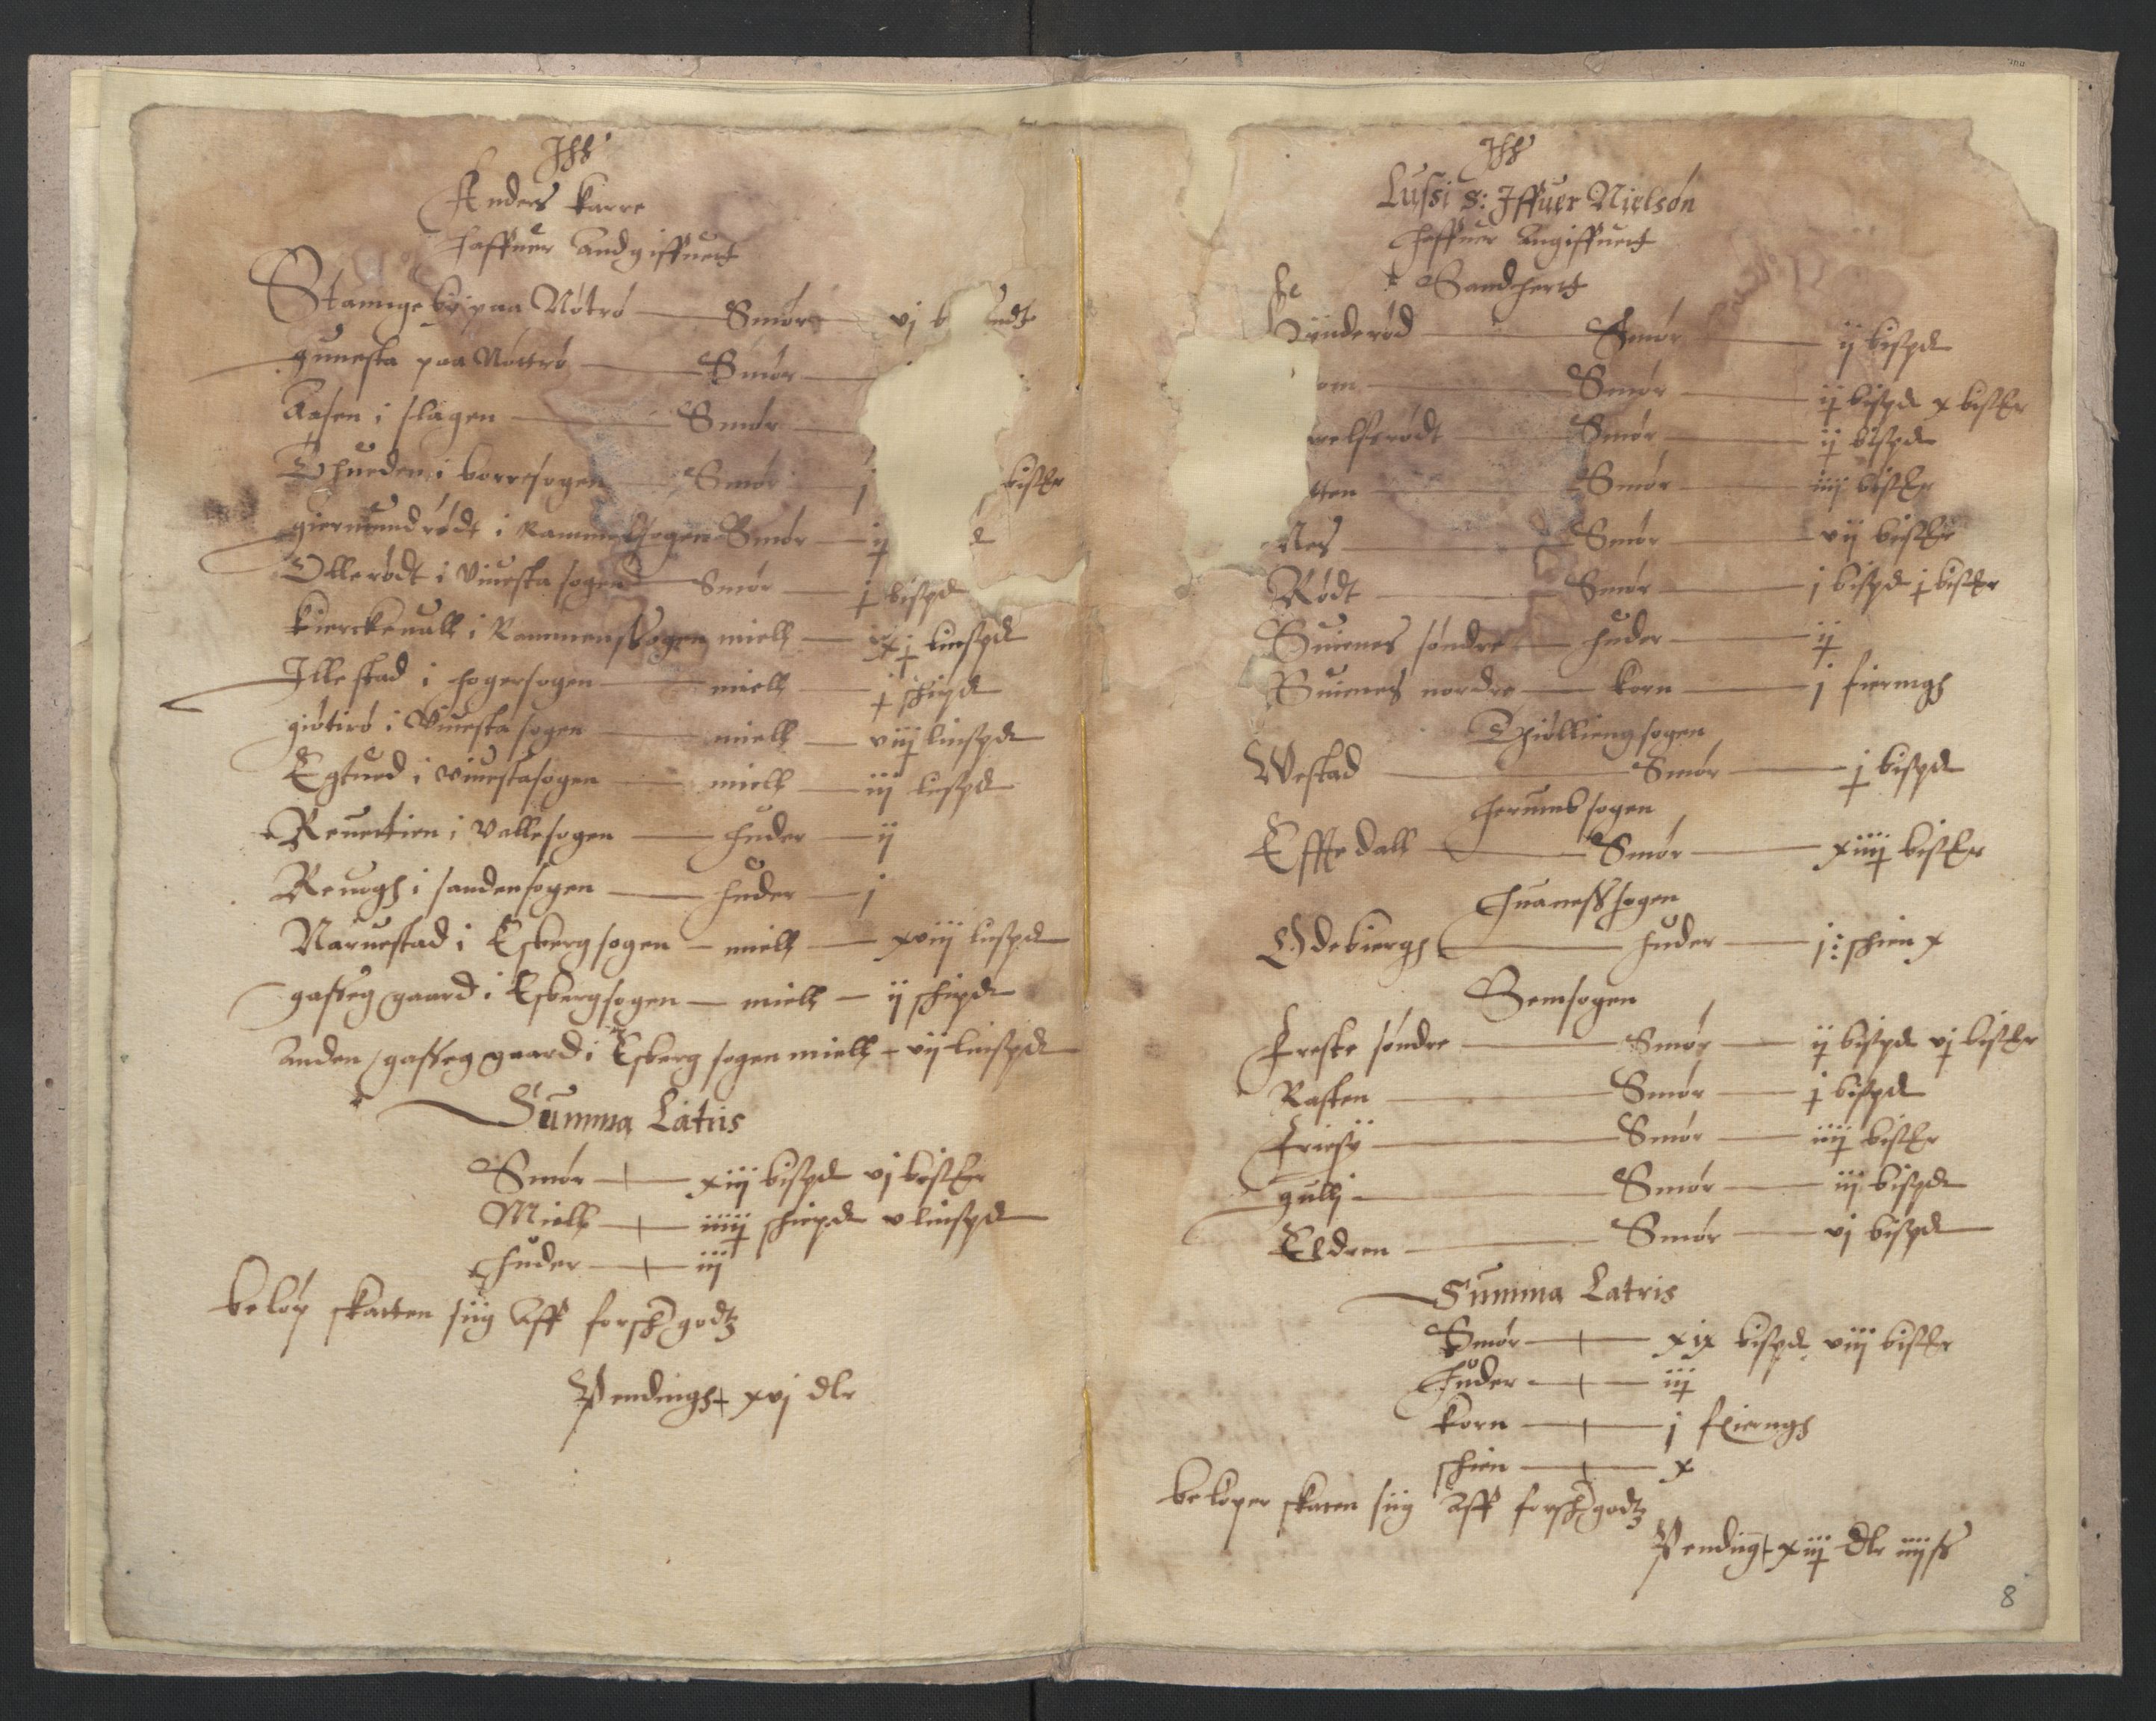 Jhs
Anders Karre
haffuer Andgiffuert
Stannge by paa Nøtrø Smør vj b undt
gunesta paa Nøttrø Smør
Aasen i slagen Smør
Thueden i borresogen Smør j bisEr
giermundrødt i Rammelsogen Smør ij
Ollerødt i Viuesta sogen Smør j bispd
Kierckeuall i Rammenssogen miell xj lispd
Illestad i hogersogen miell j schipd
giøtirø i Viuesta sogen miell viij liuspd
Egtued i Viuestasogen miell iij lispd
Reuertien i Vallesogen huder ij
Reuogh i sandensogen huder j
Naruestad i Esbergsogen miell xviij liuspd
gasseg gaard i Esbergsogen miell ij schipd
anden gasseg gaard i Esberg sogen miell vij liuspd
Summa Latris
Smør xiij bispd vj bisEr
Miell iiiij schiepd v liuspd
huder iij
beløp skatten siig Aff forsch godtz
Pendingh xvj dlr
Jhs
Lussi S: Iffuer Nielsøn
haffuer Angiffuert
Sandhertt
he
Hynderød Smør ij bispd
om Smør ij bispd x bisEr
uelsrødt Smør ij bispd
tten Smør iiij bisEr
Nes Smør vij bisEr
Rødt Smør j bispd j bisEr
Buienes søndre huder ij
Buienes nordre korn j fiermgh
Thiøllieng sogen
Westad Smør j bispd
herumbsogen
Efftedall Smør xiiij bisEr
huanesssogen
Odebiergh huder j: schien x
Semsogen
Freske søndre Smør ij bispd vj bisEr
Rasten Smør j bispd
Friesy Smør iiij bisEr
gulli Smør iij bispd
Eldren Smør vj bispd
Summa Latris
Smør xix bispd viij bisEr
huder iij
korn j fierngh
schien x
beløper skaten siig Aff forsch godtz
Pending xiij dlr iiij ss
8